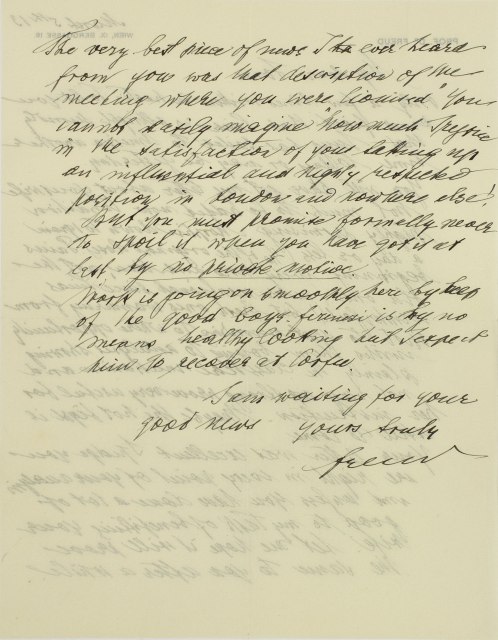 The very best piece of news I ever heard
from you was that description of the
meeting where you were "lionised". You
cannot easily imagine how much I rejoice
in the satisfaction of your taking up
an influential and highly respected
position in London and nowhere else!
But you must promise formally never
to spoil it when you have got it at
last, by no private motive.
Work is going on smoothly here by help
of the good boys. Ferenczi is by no
means healthy looking but I expect
him to recover at Corfu.
I am waiting for your
good news yours truly
Freud